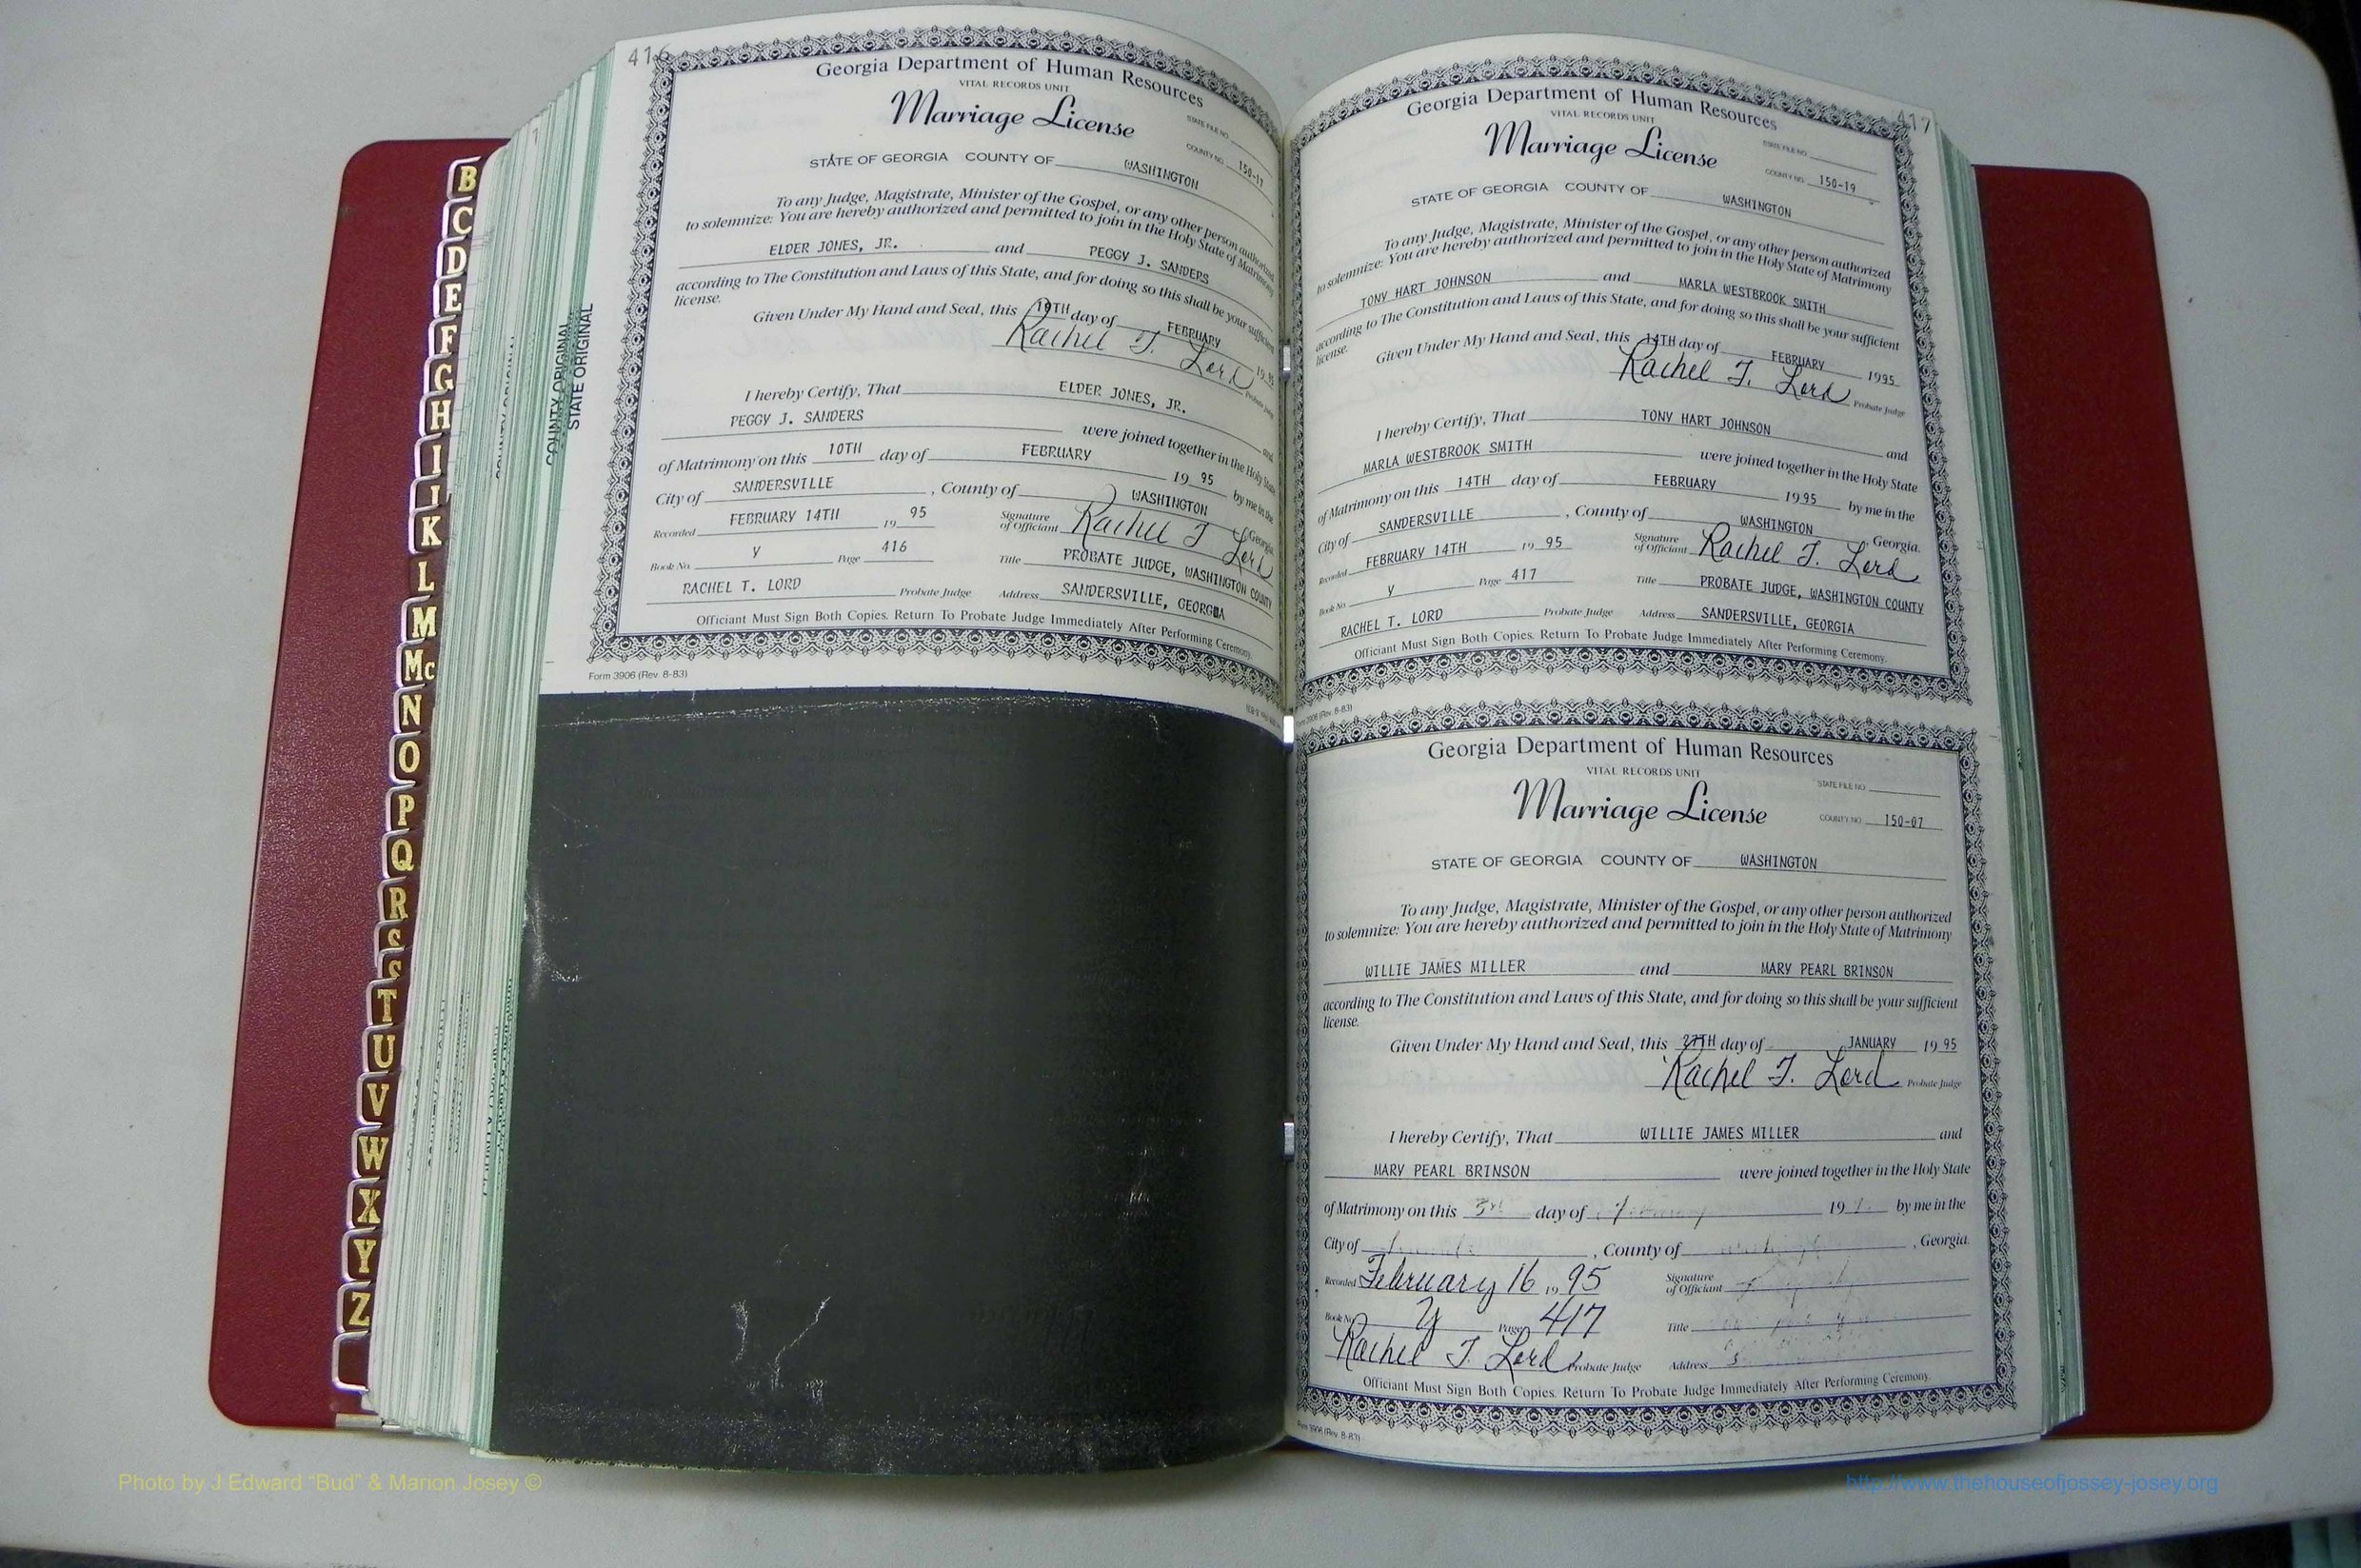 B
C
D
E
F
G
H
I
J
K
L
M
Mc
N
O
P
Q
R
S
S
T
U
V
W
X
Y
Z
COUNTY ORIGINAL
STATE ORIGINAL
416
Georgia Department of Human Resources
VITAL RECORDS UNIT
Marriage License
STATE FILE NO.
COUNTY NO. 150-17
STATE OF GEORGIA COUNTY OF WASHINGTON
To any Judge, Magistrate, Minister of the Gospel, or any other person authorized
to solemnize: You are hereby authorized and permitted to join in the Holy State of Matrimony
ELDER JONES, JR. and PEGGY J. SANDERS
according to The Constitution and Laws of this State, and for doing so this shall be your sufficient
license.
Given Under My Hand and Seal, this 10TH day of FEBRUARY 19 95
Rachel T. Lord Probate Judge
I hereby Certify, That ELDER JONES, JR. and
PEGGY J. SANDERS were joined together in the Holy State
of Matrimony on this 10TH day of FEBRUARY 19 95 by me in the
City of SANDERSVILLE, County of WASHINGTON Georgia.
Recorded FEBRUARY 14TH 19 95 Signature of Officiant Rachel T Lord
Book No. Y Page 416 Title PROBATE JUDGE, WASHINGTON COUNTY
RACHEL T. LORD Probate Judge Address SANDERSVILLE, GEORGIA
Officiant Must Sign Both Copies. Return To Probate Judge Immediately After Performing Ceremony.
Form 3906 (Rev. 8-83)
417
Georgia Department of Human Resources
VITAL RECORDS UNIT
Marriage License
STATE FILE NO.
COUNTY NO. 150-19
STATE OF GEORGIA COUNTY OF WASHINGTON
To any Judge, Magistrate, Minister of the Gospel, or any other person authorized
to solemnize: You are hereby authorized and permitted to join in the Holy State of Matrimony
TONY HART JOHNSON and MARLA WESTBROOK SMITH
according to The Constitution and Laws of this State, and for doing so this shall be your sufficient
license.
Given Under My Hand and Seal, this 14TH day of FEBRUARY 1995
Rachel T. Lord Probate Judge
I hereby Certify, That TONY HART JOHNSON and
MARLA WESTBROOK SMITH were joined together in the Holy State
of Matrimony on this 14TH day of FEBRUARY 1995 by me in the
City of SANDERSVILLE, County of WASHINGTON Georgia.
Recorded FEBRUARY 14TH 19 95 Signature of Officiant Rachel T. Lord
Book No. Y Page 417 Title PROBATE JUDGE, WASHINGTON COUNTY
RACHEL T. LORD Probate Judge Address SANDERSVILLE, GEORGIA
Officiant Must Sign Both Copies. Return To Probate Judge Immediately After Performing Ceremony.
Form 3906 (Rev. 8-83)
Georgia Department of Human Resources
VITAL RECORDS UNIT
Marriage License
STATE FILE NO.
COUNTY NO. 150-07
STATE OF GEORGIA COUNTY OF WASHINGTON
To any Judge, Magistrate, Minister of the Gospel, or any other person authorized
to solemnize: You are hereby authorized and permitted to join in the Holy State of Matrimony
WILLIE JAMES MILLER and MARY PEARL BRINSON
according to The Constitution and Laws of this State, and for doing so this shall be your sufficient
license.
Given Under My Hand and Seal, this 27TH day of JANUARY 19 95
Rachel T. Lord Probate Judge
I hereby Certify, That WILLIE JAMES MILLER and
MARY PEARL BRINSON were joined together in the Holy State
of Matrimony on this 3rd day of February 19 by me in the
City of , County of Washington, Georgia.
Recorded February 16 19 95 Signature of Officiant
Book No. Y Page 417 Title
Rachel T. Lord Probate Judge Address
Officiant Must Sign Both Copies. Return To Probate Judge Immediately After Performing Ceremony.
Form 3906 (Rev. 8-83)
Photo by J Edward "Bud" & Marion Josey ©
http://www.thehouseofjossey-josey.org